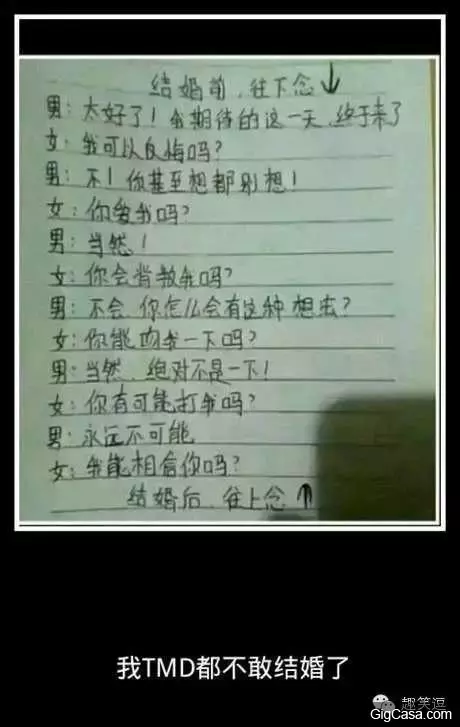 结婚前,往下念↓
男:太好了!我期待的这一天,终于来了
女:我可以反悔吗?
男:不!你甚至想都别想!
女:你爱我吗?
男:当然!
女:你会背叛我吗?
男:不会,你怎么会有这种想法?
女:你能吻我一下吗?
男:当然,绝对不是一下!
女:你有可能打我吗?
男:永远不可能
女:我能相信你吗?
结婚后,往上念↑
我TMD都不敢结婚了
趣笑逗
GigCasa.com